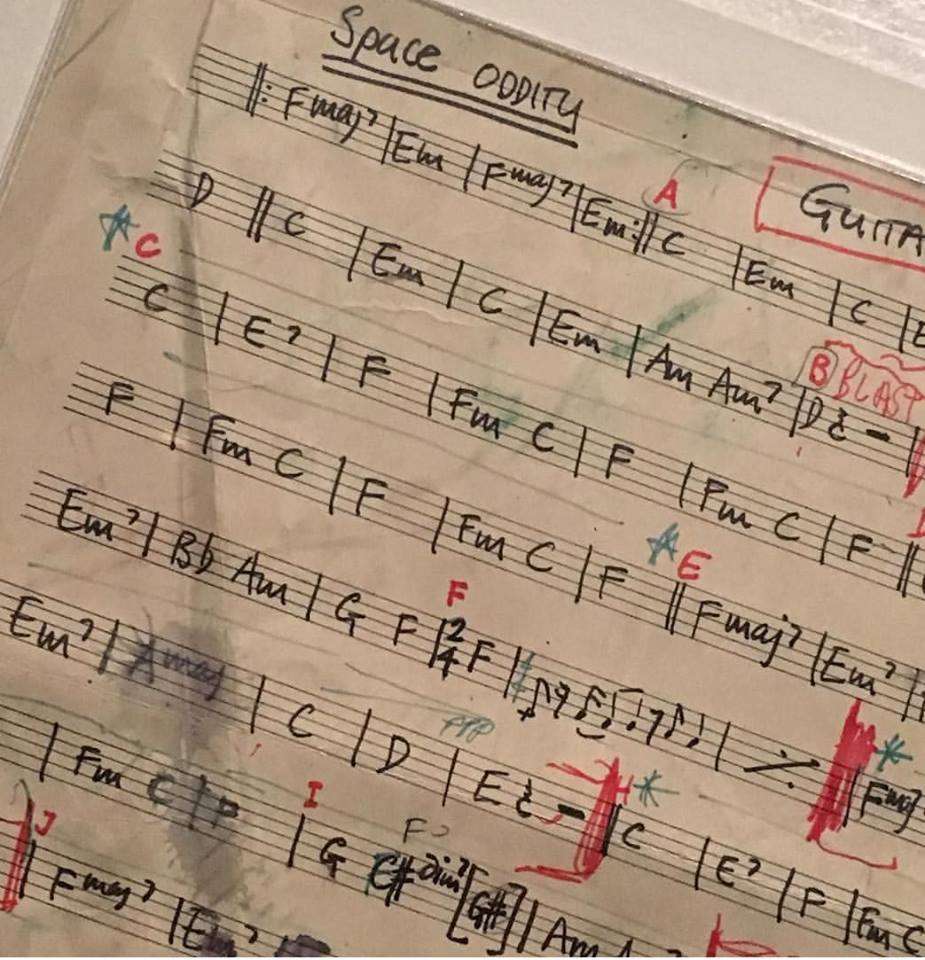 Space ODDITY
GUITA
||: Fmaj7 | Em | Fmaj7 | Em :|| A C | Em | C |
D || C | Em | C | Em | Am Am7 | B BLAST D 𝄽 –
C C | E7 | F | Fm C | F | Fm C | F ||
F | Fm C | F | Fm C | F || E Fmaj7 | Em7 |
Em7 | Bb Am | G F | F 2/4 F | | ٪ | Fmaj
Em7 | Amaj | C | D | ppp E 𝄽 – || H C | E7 | F | Fm C
| Fm C | F | I G F? C#dim7 [G#] | Am
J Fmaj7 | Em7